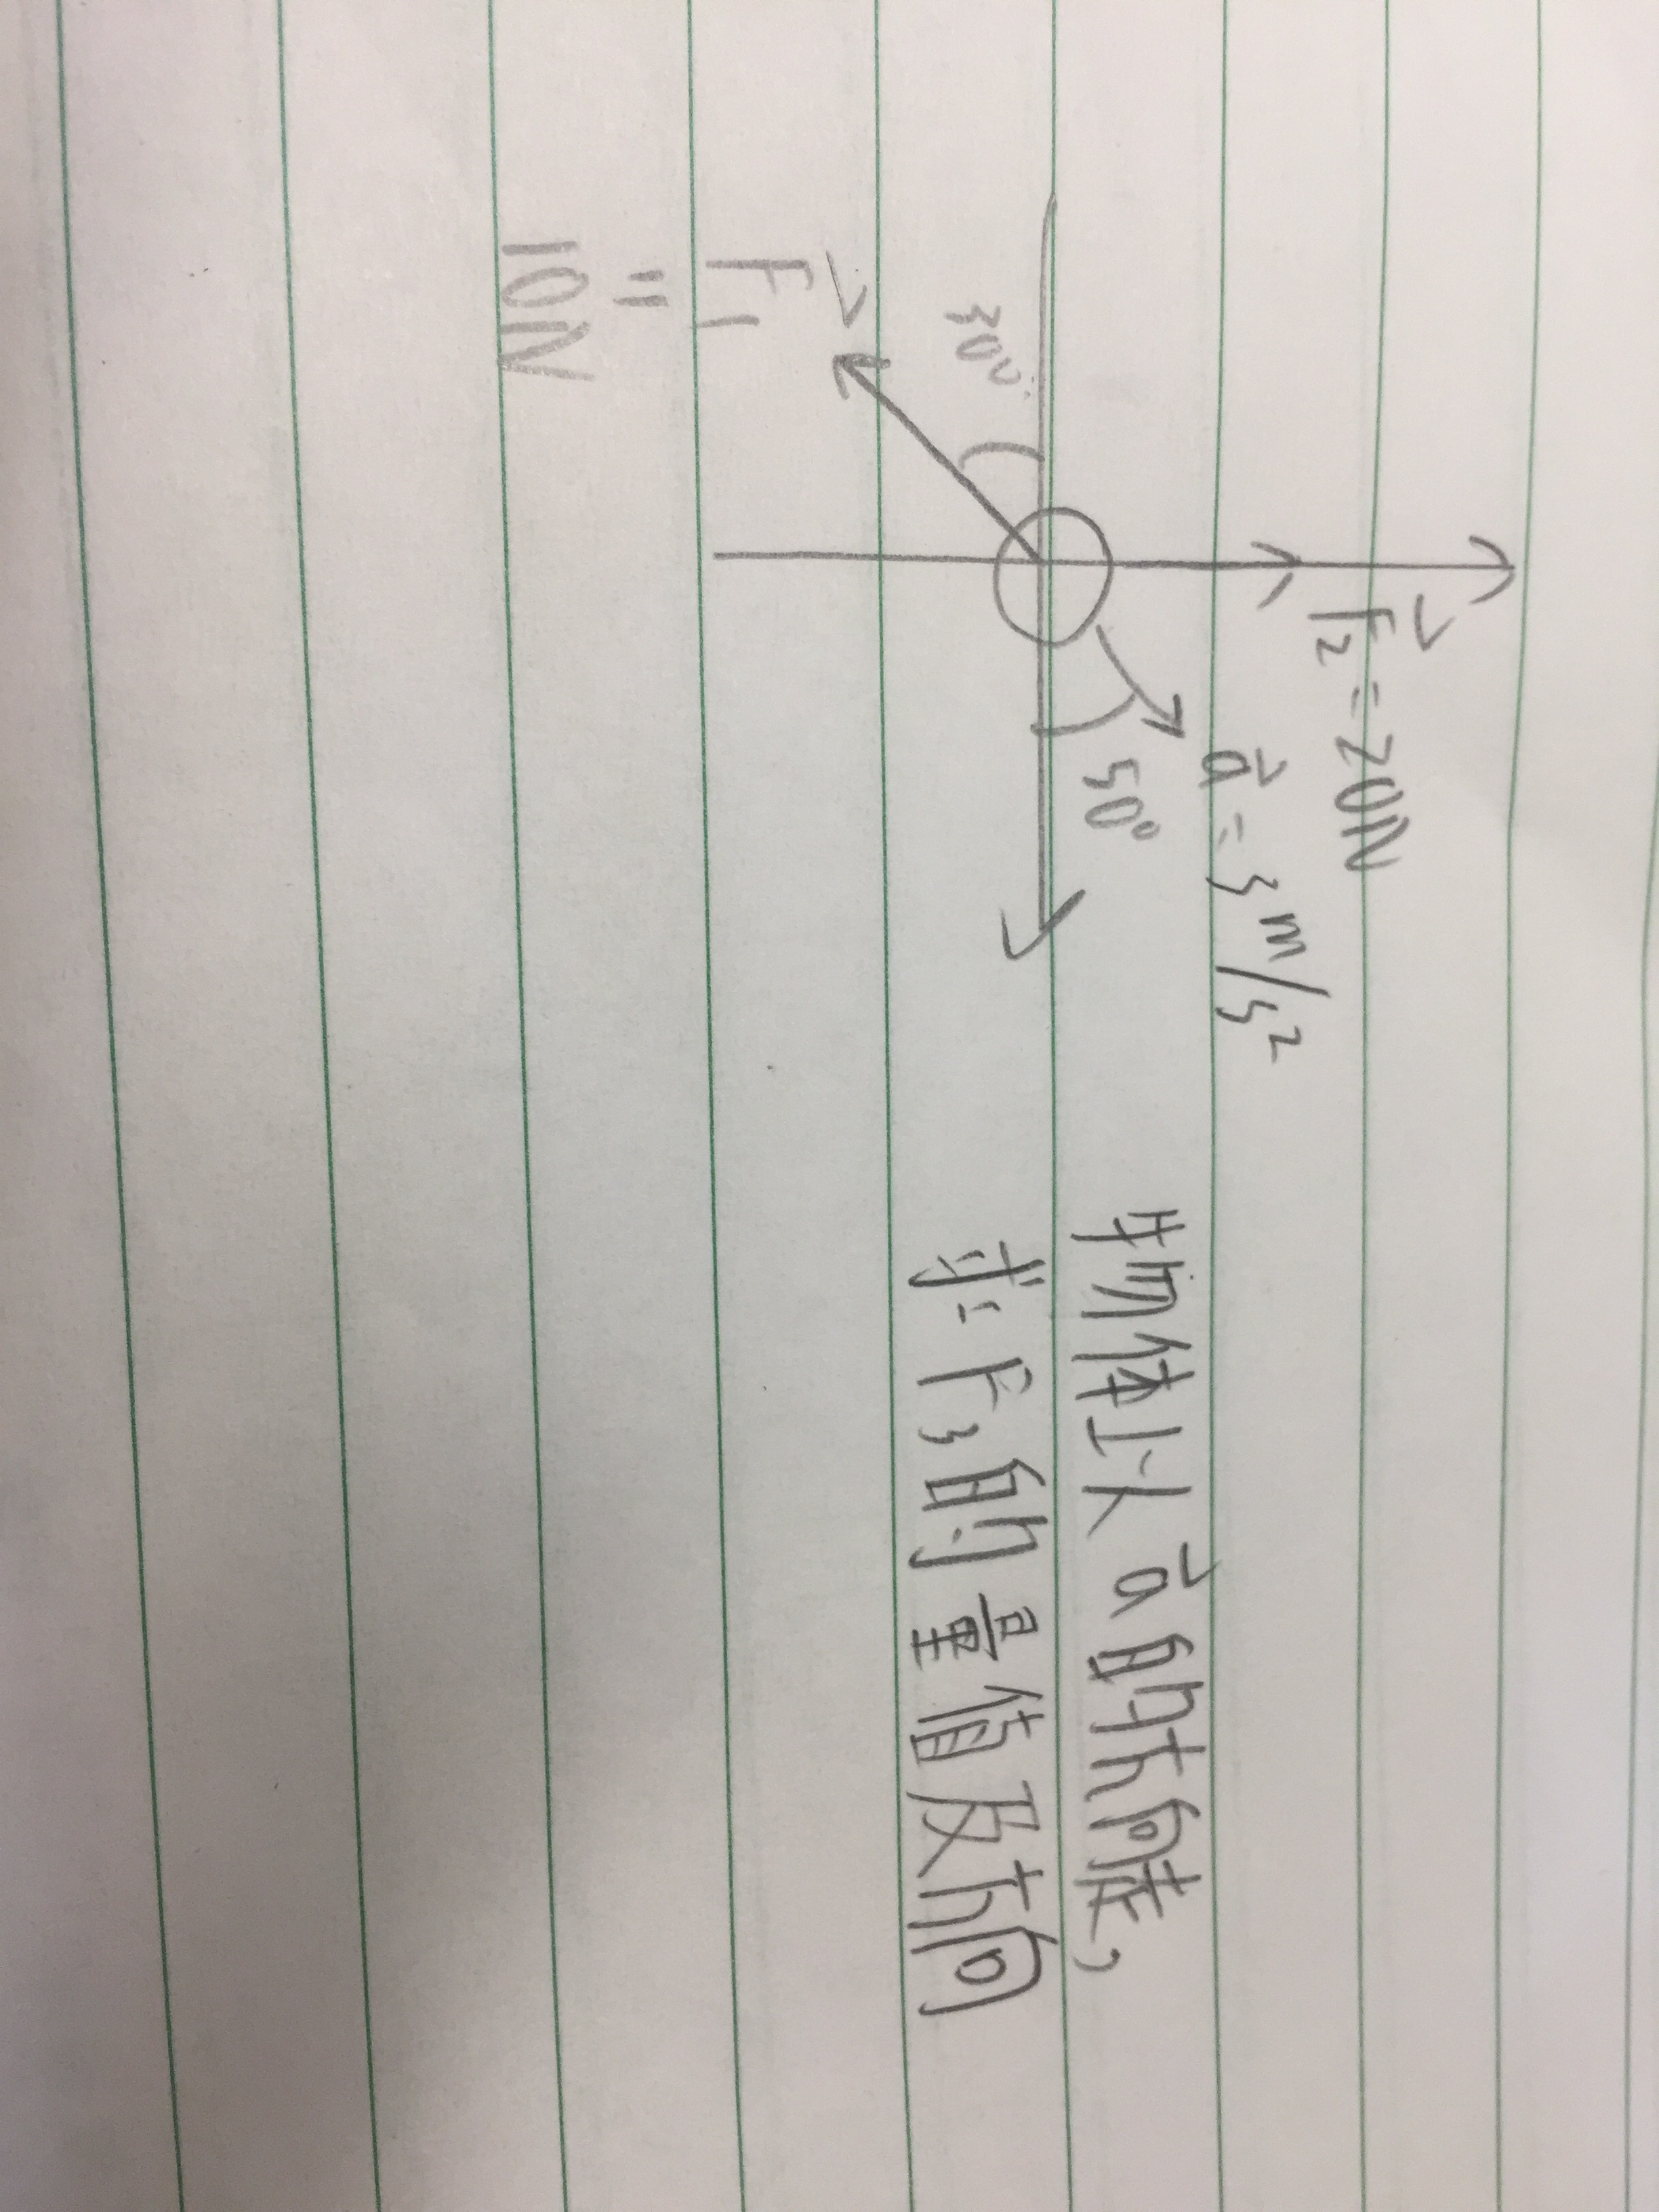 F₂ = 20N
a = 3 m/s²
50°
30°
F₁
=
10N
物体以 a 的方向走，
求: F₃的量值及方向